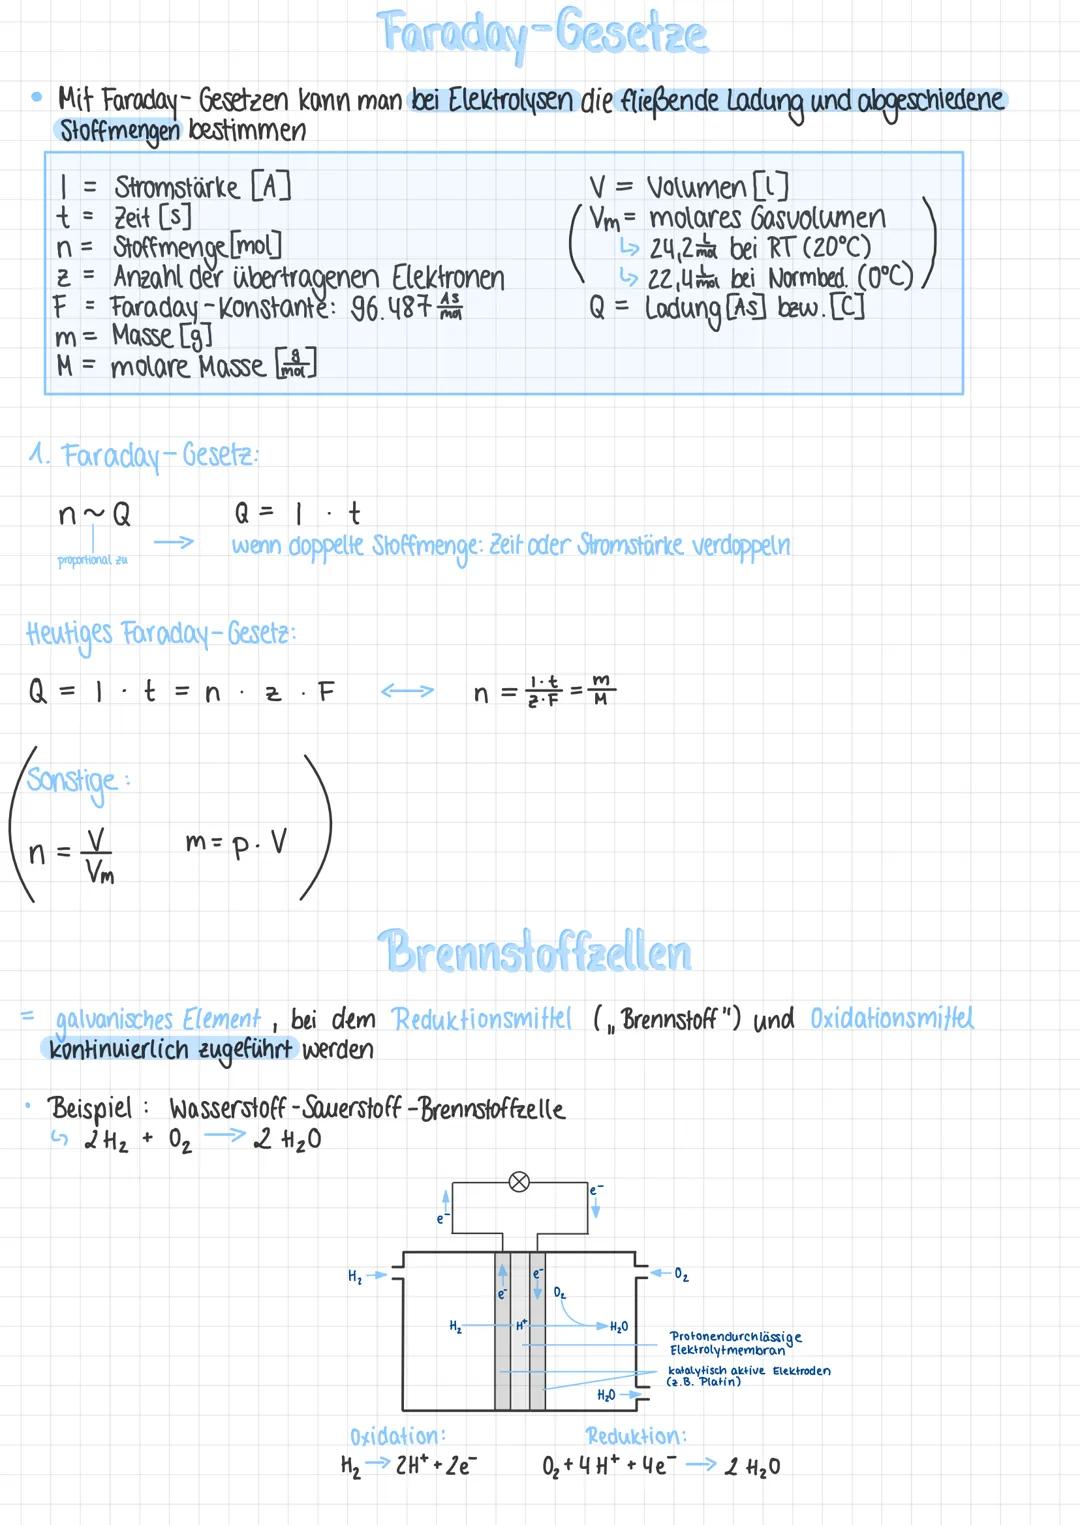 Faraday-Gesetze
• Mit Faraday-Gesetzen kann man bei Elektrolysen die fließende Ladung und abgeschiedene
Stoffmengen bestimmen
I = Stromstärke [A]
t = Zeit [s]
n = Stoffmenge [mol]
z = Anzahl der übertragenen Elektronen
F = Faraday-Konstante: 96.487 As/mol
m = Masse [g]
M = molare Masse [g/mol]
V = Volumen [l]
(Vm = molares Gasvolumen
↳ 24,2 L/mol bei RT (20°C)
↳ 22,4 L/mol bei Normbed. (0°C))
Q = Ladung [As] bzw. [C]
1. Faraday-Gesetz:
n ~ Q Q = I · t
proportional zu → wenn doppelte Stoffmenge: Zeit oder Stromstärke verdoppeln
Heutiges Faraday-Gesetz:
Q = I · t = n · z · F ↔ n = I·t/z·F = m/M
(Sonstige:
n = V/Vm m = p · V)
Brennstoffzellen
= galvanisches Element, bei dem Reduktionsmittel („Brennstoff") und Oxidationsmittel
kontinuierlich zugeführt werden
• Beispiel: Wasserstoff-Sauerstoff-Brennstoffzelle
↳ 2H₂ + O₂ → 2 H₂O
e⁻
e⁻
H₂ →
e⁻
e⁻
← O₂
O₂
H₂ H⁺ → H₂O
Protonendurchlässige
Elektrolytmembran
katalytisch aktive Elektroden
(z.B. Platin)
H₂O →
Oxidation: Reduktion:
H₂ → 2H⁺ + 2e⁻ O₂ + 4H⁺ + 4e⁻ → 2 H₂O